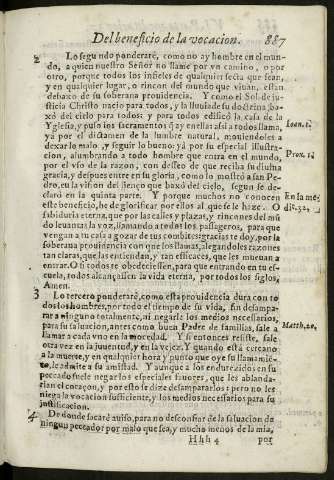 Del beneficio de la vocacion. 887
2 Lo segundo ponderaré, como no ay hombre en el mun-
do, a quien nuestro Señor no llame por vn camino, o por
otro, porque todos los infieles de qualquier secta que sean,
y en qualquier lugar, o rincon del mundo que viuan, estan
debaxo de su soberana prouidencia. Y como el Sol de ju-
sticia Christo nacio para todos, y la lluuia de su doctrina ba-
xó del cielo para todos; y para todos edificò la casa de la
Yglesia, y puso los sacramentos q̃ ay en ella: assi a todos llama,
Ioan. 1.
ya por el dictamen de la lumbre natural, mouiendoles a
dexar lo malo, y seguir lo bueno: yá por su especial illustra-
cion, alumbrando a todo hombre que entra en el mundo,
Prou. 1.
por el vso de la razon, con desseo de que reciba su diuina
gracia, y despues entre en su gloria, como lo mostró a san Pe-
dro, en la vision del lienço que baxó del cielo, segun se de-
clarò en la quinta parte. Y porque muchos no conocen
En la me
este beneficio, he de glorificar por ellos al que se le haze. O
dit. 32.
sabiduria eterna, que por las calles y plazas, y rincones del mũ
do leuantas la voz, llamando a todos los passageros, para que
vengan a tu casa a gozar de tus combites: gracias te doy, por la
soberana prouidencia con que los llamas, alegandoles razones
tan claras, que las entiendan, y tan efficaces, que les mueuan a
entrar. O si todos te obedeciessen, para que entrando en tu es-
cuela, todos alcançassen la vida eterna, por todos los siglos,
Amen.
3 Lo tercero ponderaré, como esta prouidencia dura con to
dos los hombres, por todo el tiempo de su vida, sin desampa-
rar a ninguno totalmente, ni negarle los medios necessarios,
para su saluacion, antes como buen Padre de familias, sale a
Matth. 20.
llamar a cada vno en la mocedad. Y si entonces resiste, sale
otra vez en la juuentud, y en la vejez. Y quando està cercano
a la muerte, y en qualquier hora y punto que oye su llamamiẽ-
to, le admite a su amistad. Y aunque a los endurezidos en su
peccado suele negar los especiales fauores, que les ablanda-
rian el coraçon, y por esto se dize desampararlos: pero no les
niega la vocacion sufficiente, y los medios necessarios para su
justificacion.
4 De donde sacaré auiso, para no desconfiar de la saluacion de
ningun peccador por malo que sea, y mucho menos de la mia,
Hhh 4 por